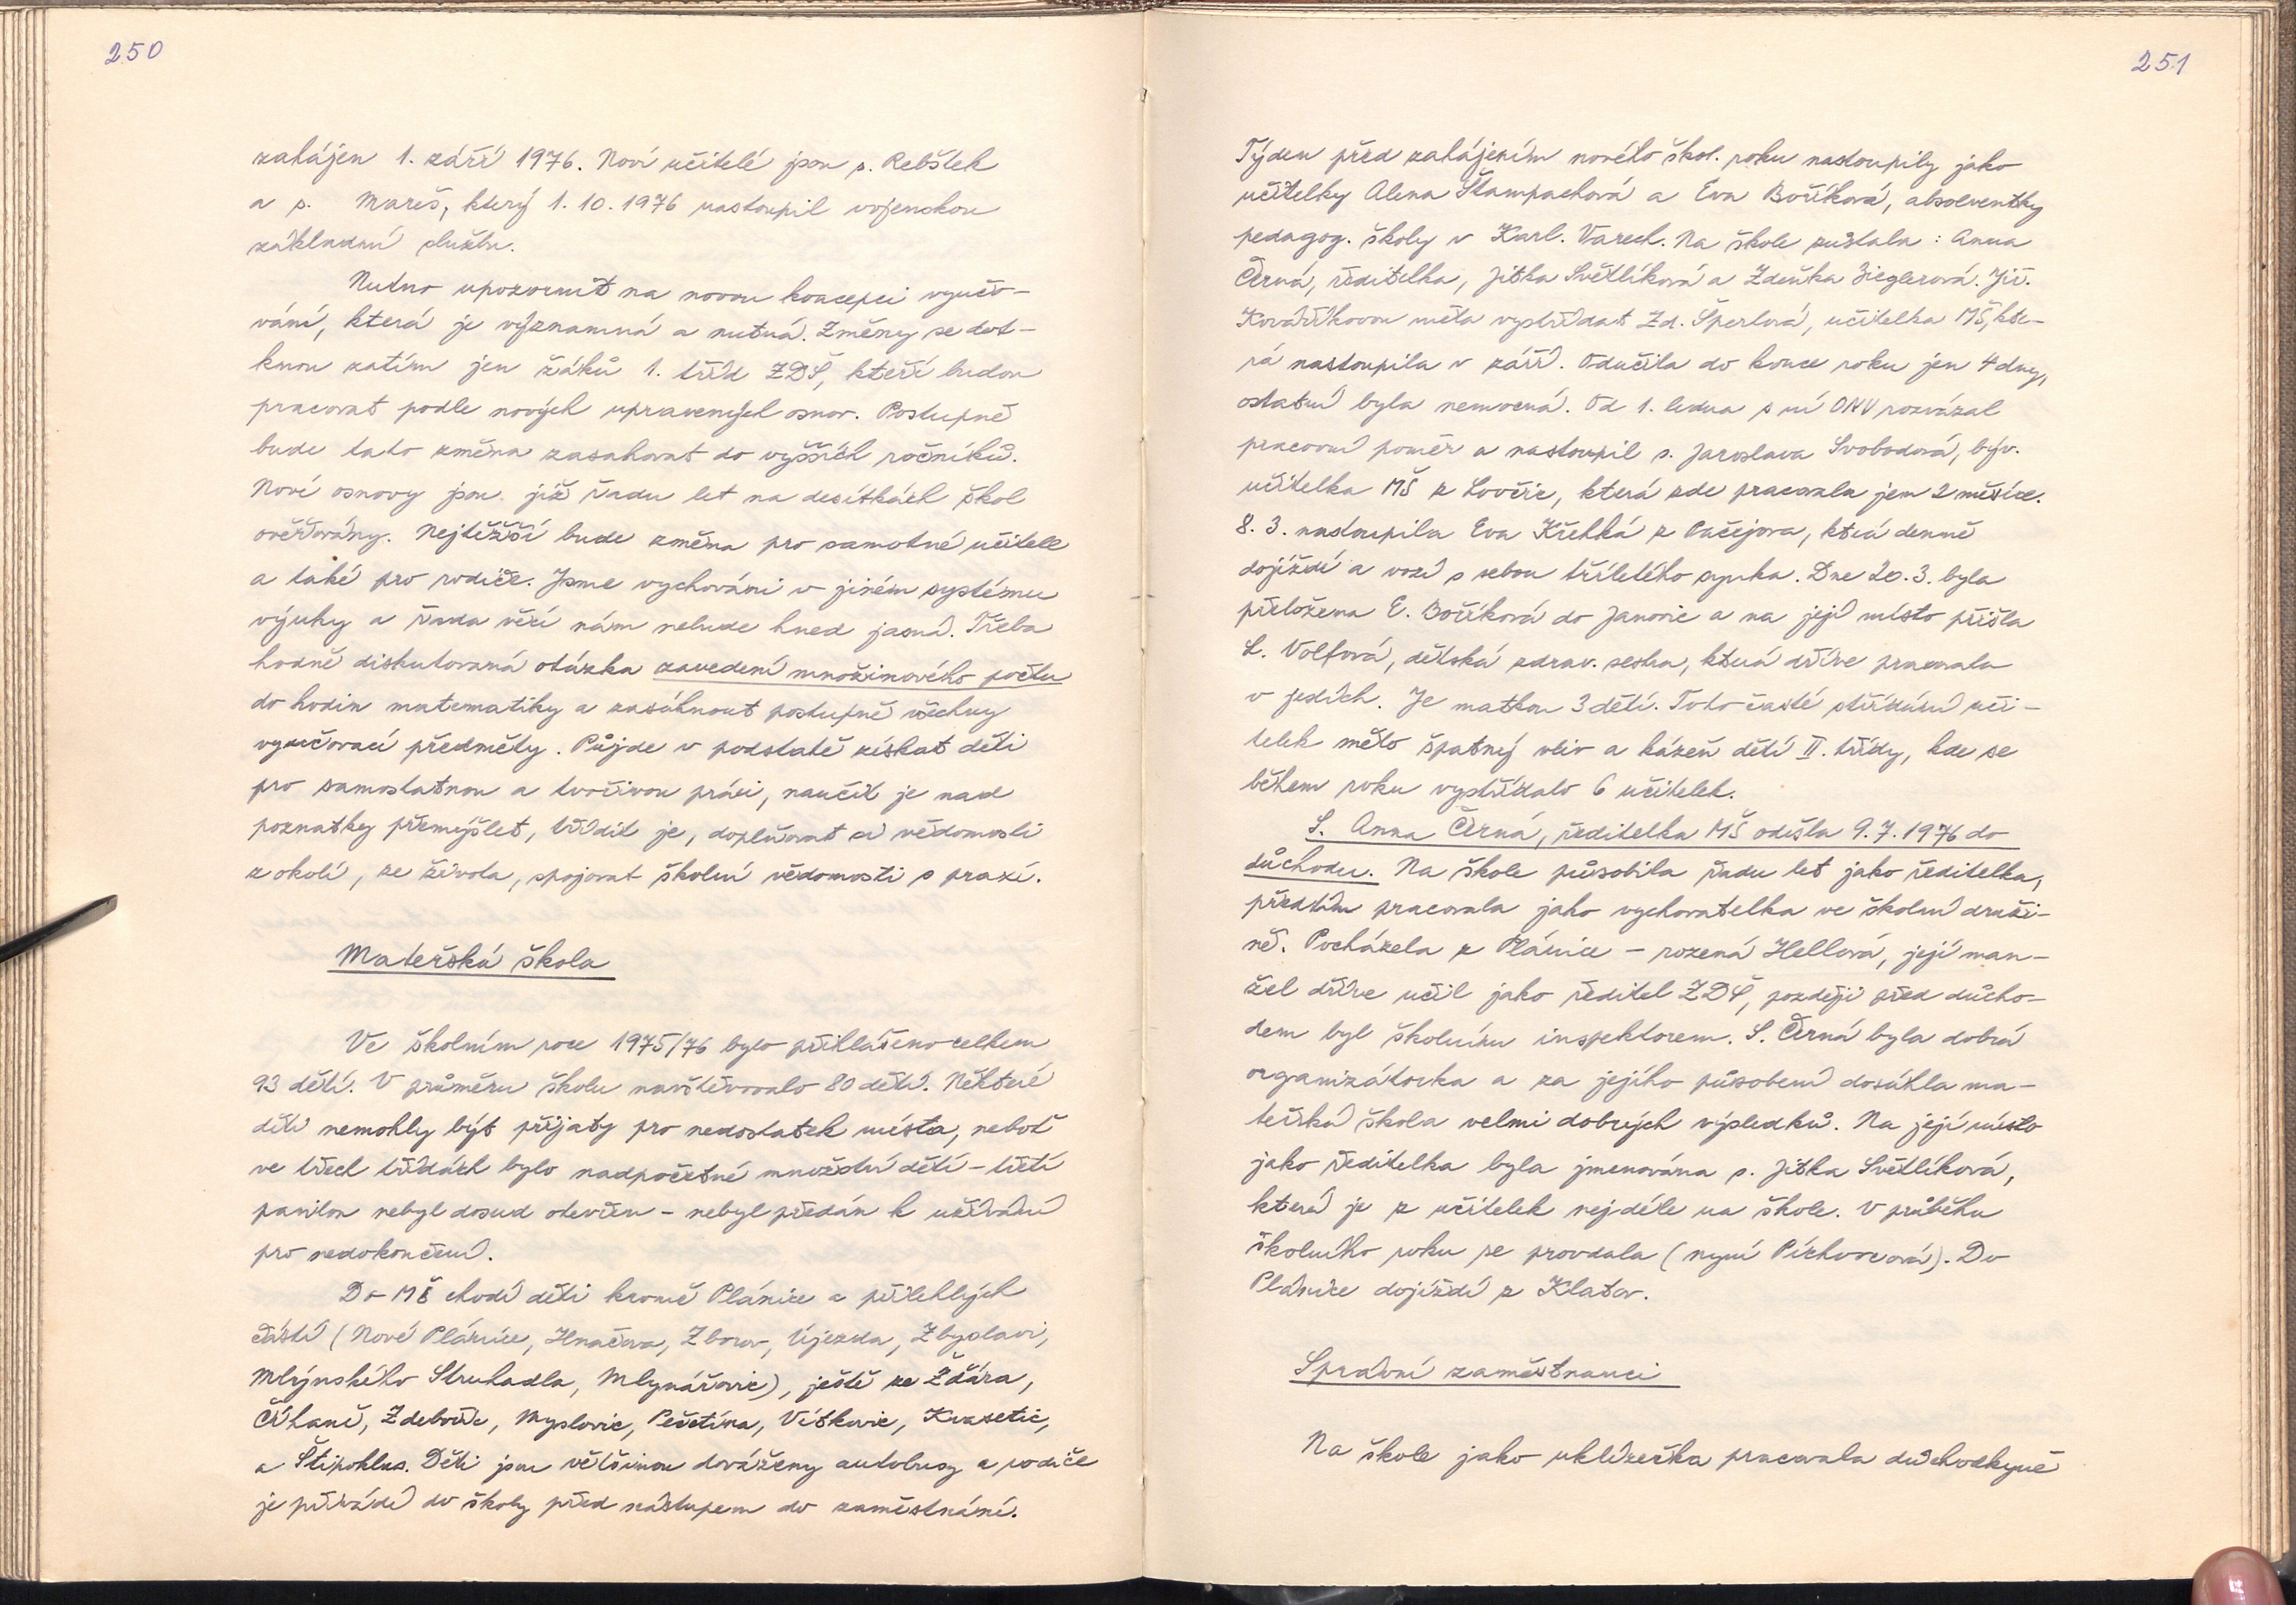 250
zahájen 1. září 1976. Noví učitelé jsou s. Rebštek
a s. Mareš, který 1.10.1976 nastoupil vojenskou
základní službu.
Nutno upozornit na novou koncepci vyučo-
vání, která je významná a nutná. Změny se dot-
knou zatím jen žáků 1. tříd ZDŠ, kteří budou
pracovat podle nových upravených osnov. Postupně
bude tato změna zasahovat do vyšších ročníků.
Nové osnovy jsou již řadu let na desítkách škol
ověřovány. Nejtěžší bude změna pro samotné učitele
a také pro rodiče. Jsme vychováni v jiném systému
výuky a řada věcí nám nebude hned jasná. Třeba
hodně diskutovaná otázka zavedení množinového počtu
do hodin matematiky a zasáhnout postupně všechny
vyučovací předměty. Půjde v podstatě získat děti
pro samostatnou a tvořivou práci, naučit je nad
poznatky přemýšlet, třídit je, doplňovat si vědomosti
z okolí, ze života, spojovat školní vědomosti s praxí.
Mateřská škola
Ve školním roce 1975/76 bylo přihlášeno celkem
93 dětí. V průměru školu navštěvovalo 80 dětí. Některé
děti nemohly být přijaty pro nedostatek místa, neboť
ve třech třídách bylo nadpočetné množství dětí - třetí
pavilon nebyl dosud otevřen - nebyl předán k užívání
pro nedokončení.
Do MŠ chodí děti kromě Plánice a přilehlých
částí (Nové Plánice, Hnačova, Zborov, Újezda, Zbyslavi,
Mlýnského Struhadla, Mlynářovic), ještě ze Žďára,
Číhaně, Zdebořic, Myslovic, Pečetína, Vítkovic, Kvasetic,
a Štipoklas. Děti jsou většinou dováženy autobusy a rodiče
je přivádí do školy před nástupem do zaměstnání.
251
Týden před zahájením nového škol. roku nastoupily jako
učitelky Alena Štampachová a Eva Boříková, absolventky
pedagog. školy v Karl. Varech. Na škole zůstala: Anna
Černá, ředitelka, Jitka Světlíková a Zdeňka Zieglerová. Jiř.
Kovaříkovou měla vystřídat Zd. Šperlová, učitelka MŠ, kte-
rá nastoupila v září. Odučila do konce roku jen 4 dny,
ostatní byla nemocná. Od 1. ledna s ní ONV rozvázal
pracovní poměr a nastoupil s. Jaroslava Svobodová, býv.
učitelka MŠ z Lovčic, která zde pracovala jen 2 měsíce.
8. 3. nastoupila Eva Křehká z Pačejova, která denně
dojíždí a vozí s sebou tříletého synka. Dne 20. 3. byla
přeložena E. Boříková do Janovic a na její místo přišla
L. Volfová, dětská zdrav. sestra, která dříve pracovala
v jeslích. Je matkou 3 dětí. Toto časté střídání uči-
telek mělo špatný vliv a kázeň dětí II. třídy, kde se
během roku vystřídalo 6 učitelek.
S. Anna Černá, ředitelka MŠ odešla 9.7.1976 do
důchodu. Na škole působila řadu let jako ředitelka,
předtím pracovala jako vychovatelka ve školní druži-
ně. Pocházela z Plánice - rozená Hellová, její man-
žel dříve učil jako ředitel ZDŠ, později před důcho-
dem byl školním inspektorem. S. Černá byla dobrá
organizátorka a za jejího působení dosáhla ma-
teřská škola velmi dobrých výsledků. Na její místo
jako ředitelka byla jmenována s. Jitka Světlíková,
která je z učitelek nejdéle na škole. V průběhu
školního roku se provdala (nyní). Do
Plánice dojíždí z Klatov.
Správní zaměstnanci
Na škole jako uklízečka pracovala důchodkyně